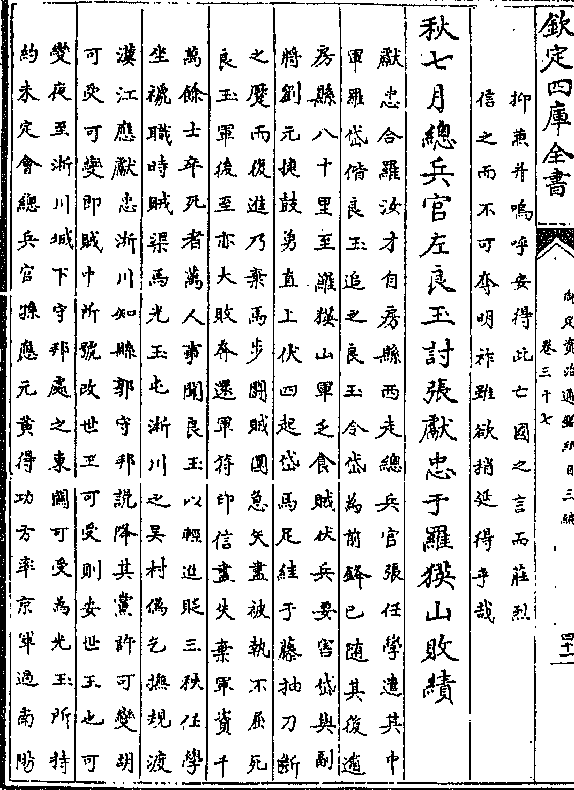 欽定四庫全書
御定資治通鑑綱目三編
卷三十七
四十二
抑兼并嗚呼安得此亡國之言而莊烈
信之而不可奪明祚雖欲稍延得乎哉
秋七月總兵官左良玉討張獻忠于羅㺅山敗績
獻忠合羅汝才自房縣西走總兵官張任學遣其中
軍羅岱偕良玉追之良玉令岱為前鋒已随其後逾
房縣八十里至羅㺅山軍乏食賊伏兵要害岱與副
將劉元捷鼓勇直上伏四起岱馬足絓于藤抽刀斷
之蹷而復進乃棄馬步鬬賊圍急矢盡被執不屈死
良玉軍後至亦大敗奔還軍符印信盡失棄軍資千
萬餘士卒死者萬人事聞良玉以輕進貶三秩任學
坐褫職時賊渠馬光玉屯淅川之吳村偽乞撫規渡
漢江應獻忠淅川知縣郭守邦説降其黨許可變胡
可受可變即賊中所號改世王可受則安世王也可
變夜至淅川城下守邦處之東關可受為光玉所持
約未定會總兵官孫應元黄得功方率京軍適南陽